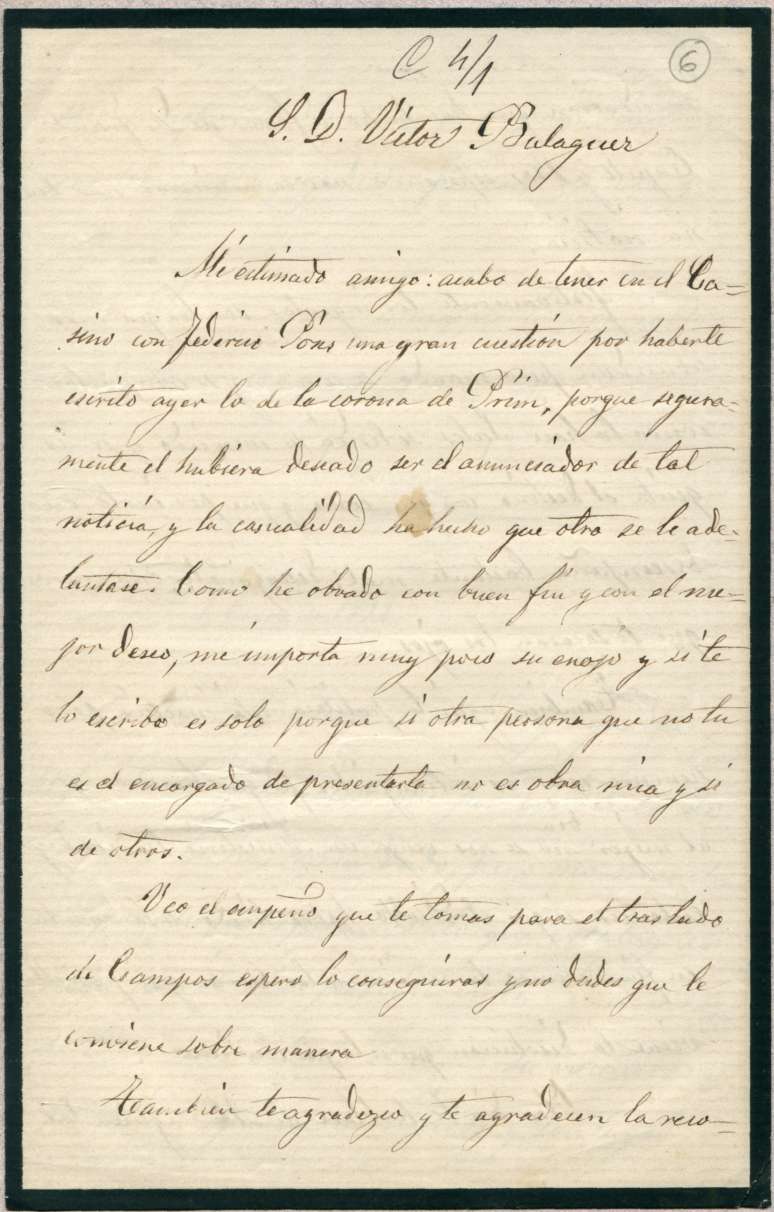 C 4/1
6
S. D. Victor Balaguer
Mi estimado amigo: acabo de tener en el Ca=
sino con Federico Pons una gran cuestión por haberte
escrito ayer lo de la corona de Prim, porque segura-
mente el hubiera deseado ser el anunciador de tal
noticia, y la casualidad ha hecho que otro se le ade-
lantase. Como he obrado con buen fin y con el me-
jor deseo, me importa muy poco su enojo y si te
lo escribo es solo porque si otra persona que no tu
es el encargado de presentarla no es obra mia y si
de otros.
Veo el empeño que te tomas para el traslado
de Campos espero lo conseguiras y no dudes que le
conviene sobre manera
Tambien te agradezco y te agradecen la reco-